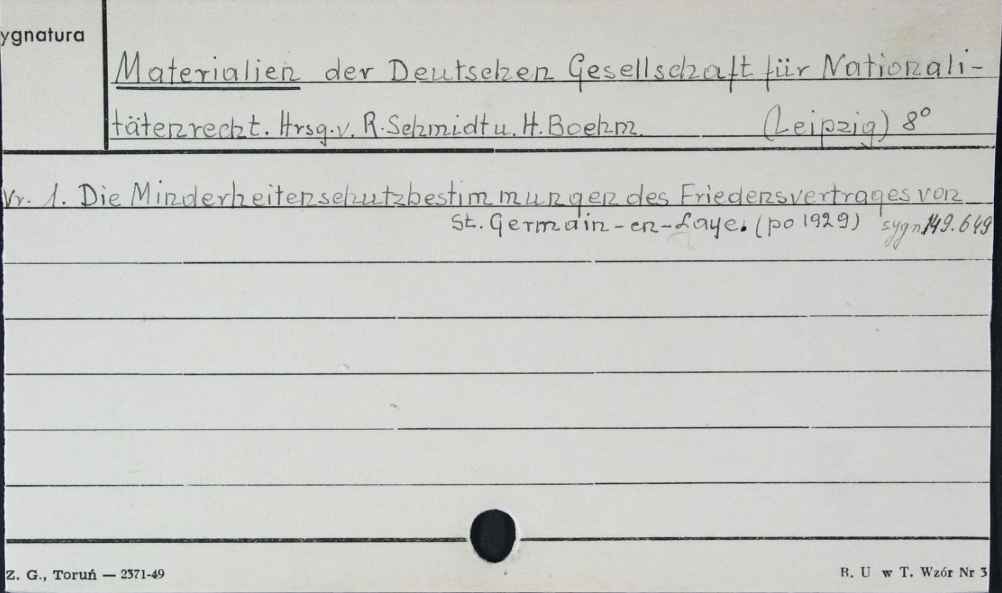 ygnatura
Materialien der Deutschen Gesellschaft für Nationali-
tätenrecht. Hrsg. v. R. Schmidt u. H. Boehm. (Leipzig) 8°
Nr. 1. Die Minderheitenschutzbestimmungen des Friedensvertrages von
St. Germain-en-Laye. (po 1929) sygn. 149.649
Z. G., Toruń — 2371-49
B. U w T. Wzór Nr 3